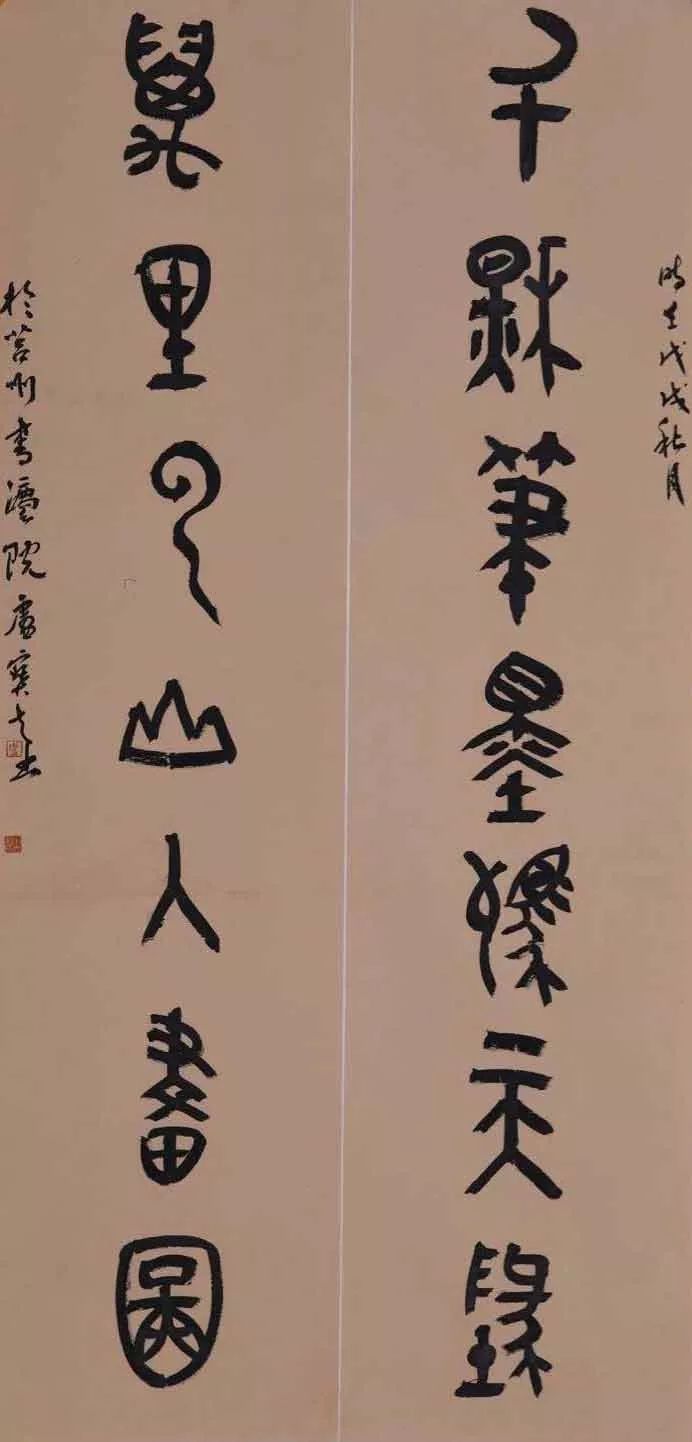 時在戊戌秋月
千秋筆墨驚天地
萬里雲山入畫圖
於莒州書灋院盧寶